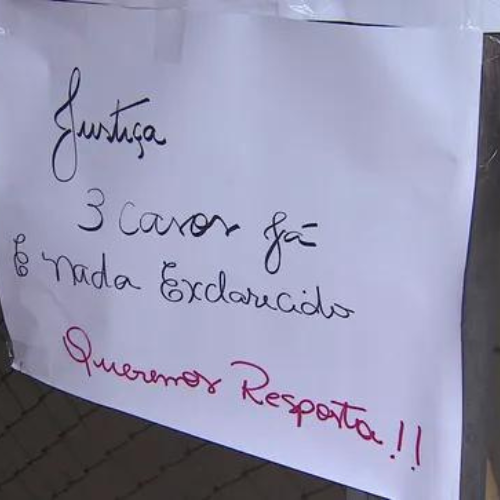 Justiça
3 casos já
E nada Exclarecido
Queremos Resposta!!